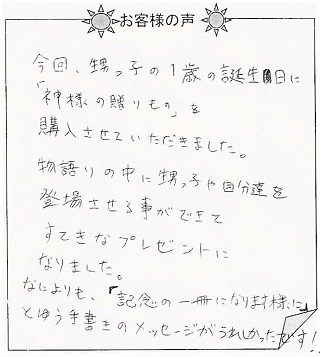 お客様の声
今回、甥っ子の1歳の誕生日に
「神様の贈りもの」を
購入させていただきました。
物語りの中に甥っ子や自分達を
登場させる事ができて
すてきなプレゼントに
なりました。
なによりも、「記念の一冊になります様に」
とゆう手書きのメッセージがうれしかったです!